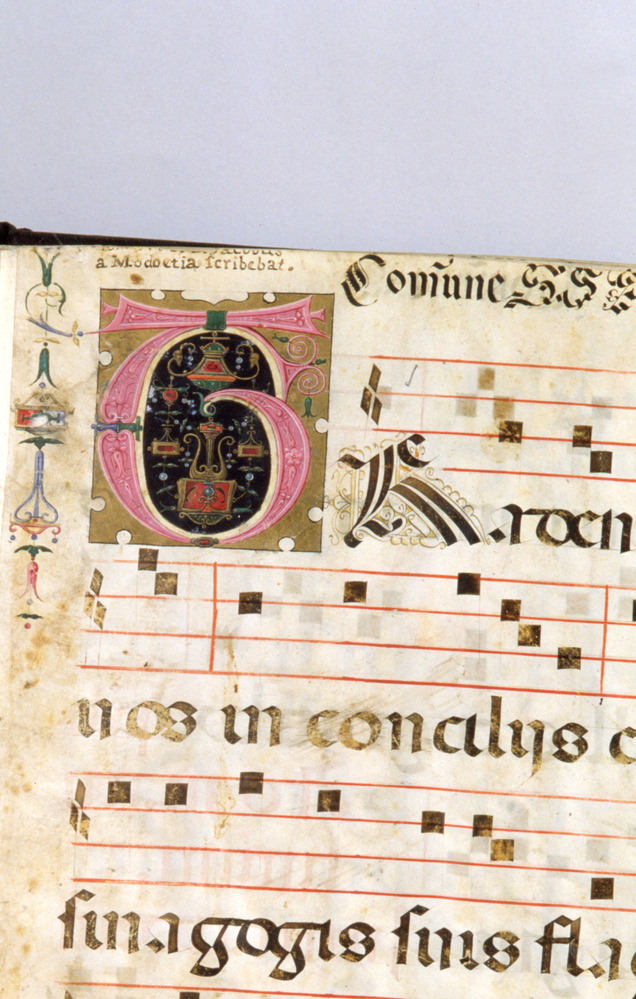 a Modoetia scribebat.
Com̃une
TRaden
uos in concilijs
sinagogis suis fla